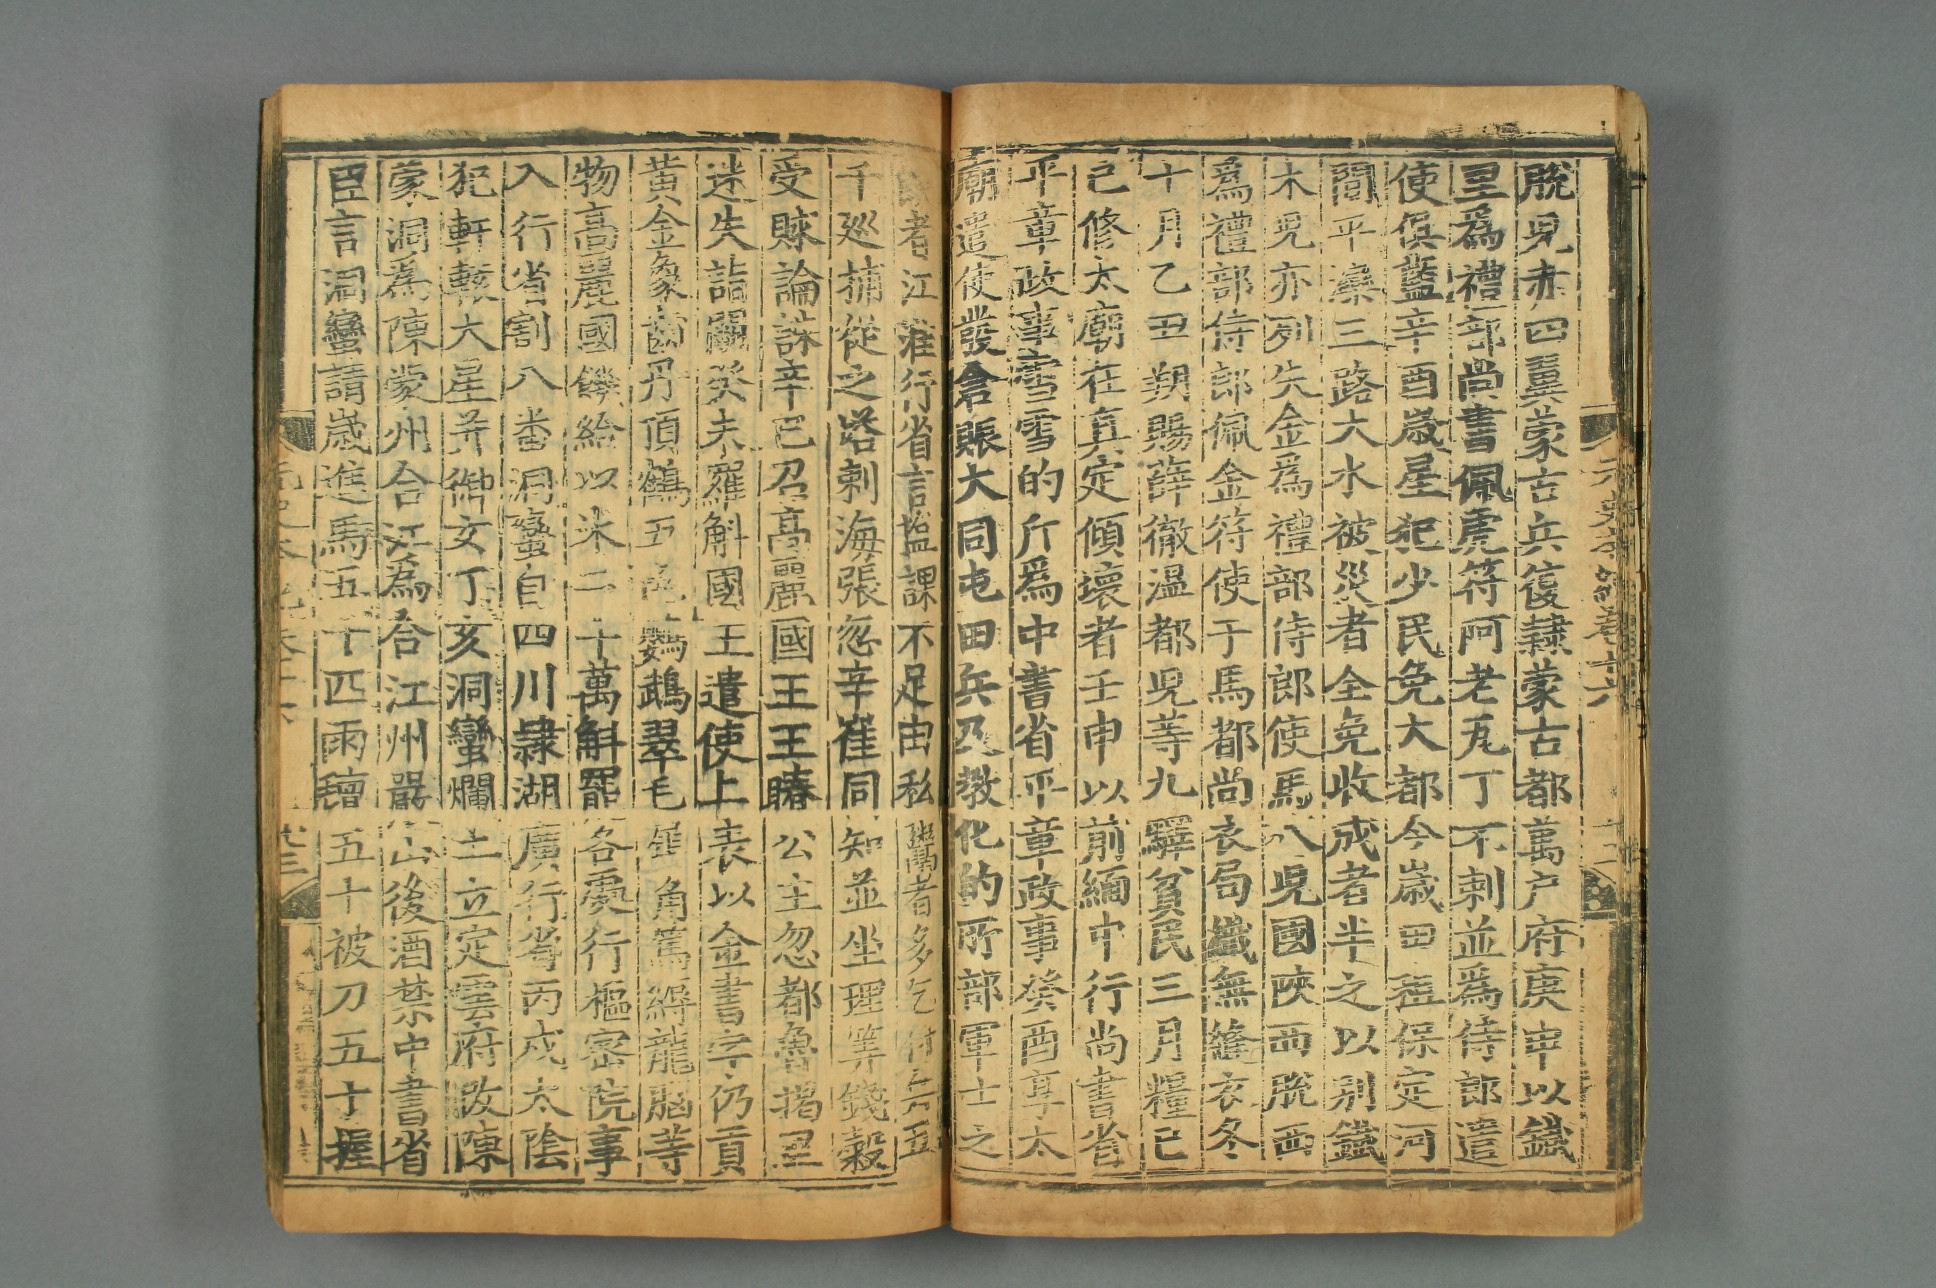 脫兒赤四翼蒙古兵復隸蒙古都萬户府庚申以鐵
里爲禮部尚書佩虎符阿老瓦丁不剌並爲侍郎遣
使俱藍辛酉歲星犯少民免大都今歲田租保定河
間平灤三路大水被災者全免收成者半之以別鐵
木兒亦列失金爲禮部侍郎使馬八兒國陝西脫西
爲禮部侍郎佩金符使于馬都尚衣局織無縫衣冬
十月乙丑朔賜薛徹溫都兒等九驛貧民三月糧己
己修太廟在真定傾壞者壬申以前緬中行尚書省
平章政事雪雪的斤爲中書省平章政事癸酉享太
廟遣使發倉賑大同屯田兵及教化的所部軍士之
者江淮行省言鹽課不足由私鬻者多乞付兵五
千巡捕從之塔剌海張忽辛崔同知並坐理筭錢穀
受賕論誅辛巳召高麗國王王睶公主忽都魯揭里
迷失詣闕癸未羅斛國王遣使上表以金書字仍貢
黄金象齒丹頂鶴五色鸚鵡翠毛犀角篤縟龍腦等
物高麗國饑給以米二十萬斛罷各處行樞密院事
入行省割八番洞蠻自四川隸湖廣行省丙戍太陰
犯軒轅大星并御女丁亥洞蠻爛土立定雲府改陳
蒙洞爲陳蒙州合江爲合江州嚴山後酒禁中書省
臣言洞蠻請歲進馬五十匹雨氊五十被刀五十握